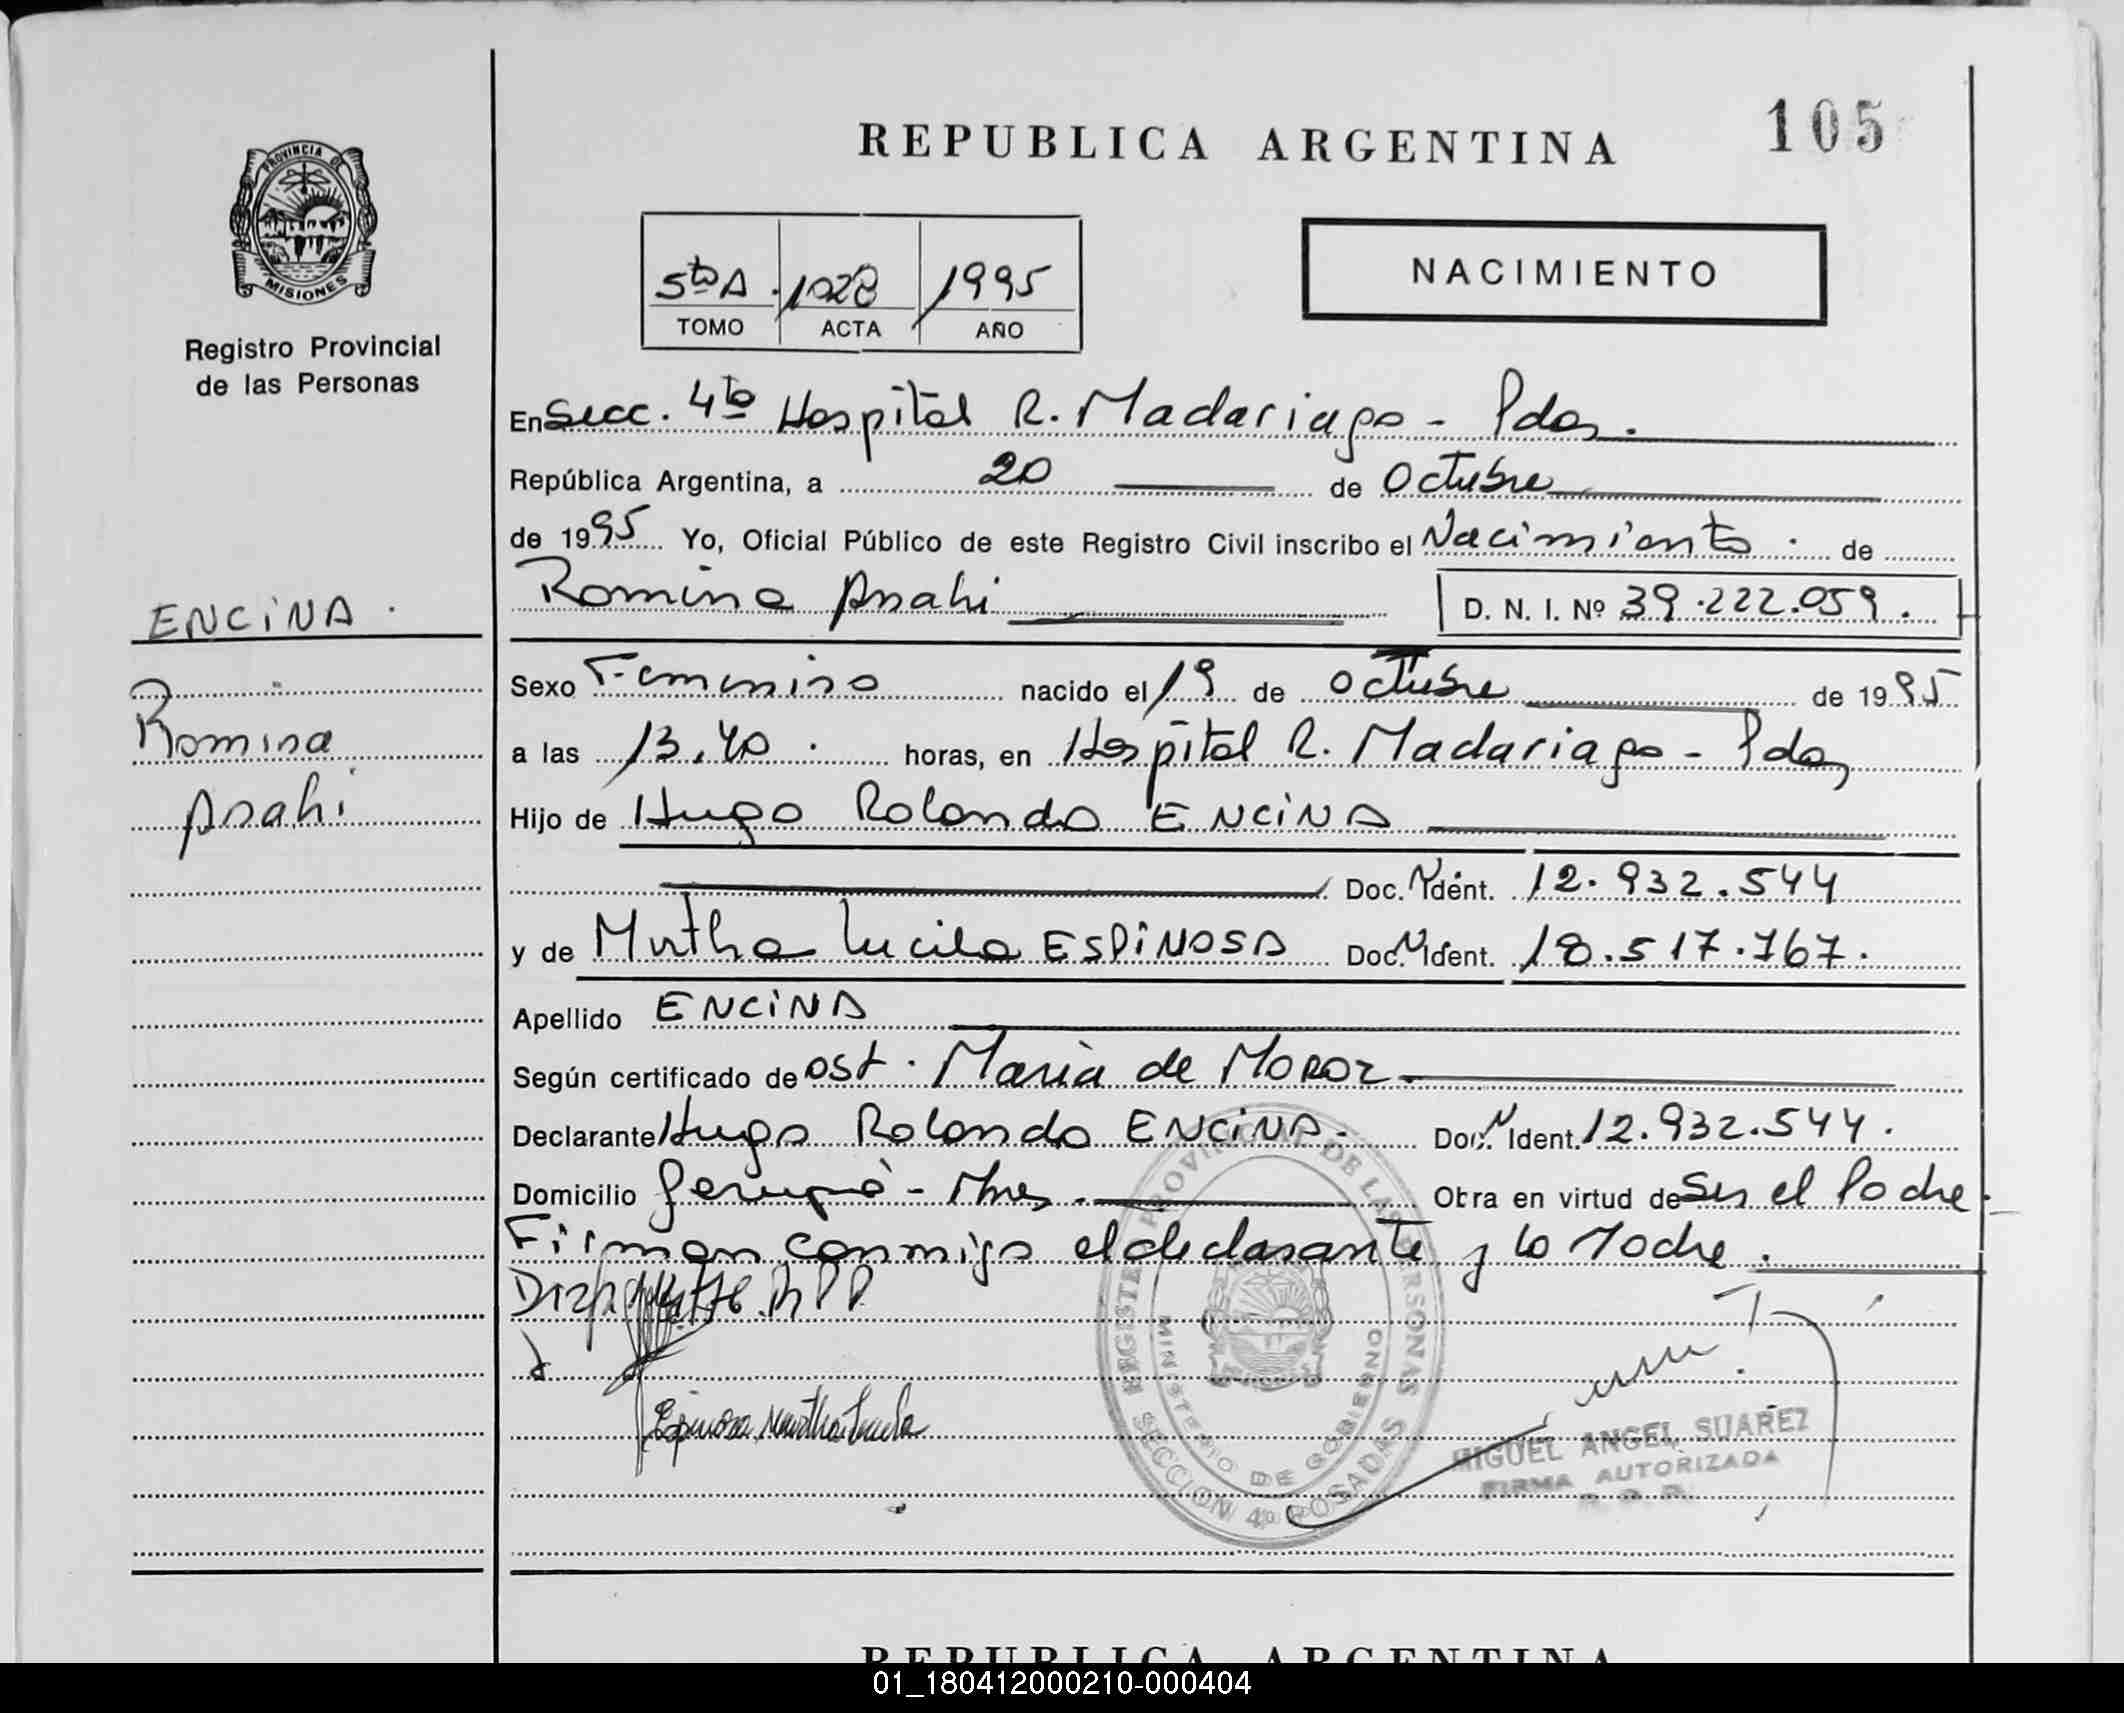 REPUBLICA ARGENTINA
105
PROVINCIA DE
MISIONES
Registro Provincial
de las Personas
5to A 1028 1995
TOMO ACTA AÑO
NACIMIENTO
En Secc. 4ta Hospital R. Madariaga - Pdas.
República Argentina, a 20 de Octubre
de 1995 Yo, Oficial Público de este Registro Civil inscribo el Nacimiento. de
Romina Anahi D. N. I. Nº 39.222.059.
ENCINA.
Romina
Anahi
Sexo Femenino nacido el 19 de Octubre de 1995
a las 13,40. horas, en Hospital R. Madariaga - Pdas
Hijo de Hugo Rolando ENCINA
Doc. Ident. 12.932.544
y de Mirtha Lucila ESPINOSA Doc. Ident. 18.517.767.
Apellido ENCINA
Según certificado de Ost. Maria de Moroz.
Declarante Hugo Rolando ENCINA. Doc. Ident. 12.932.544.
Domicilio Garupá - Mnes. Obra en virtud de Ser el Padre.
Firman conmigo el declarante y la Madre.
Espinosa Mirtha Lucila
REGISTRO PROVINCIAL DE LAS PERSONAS
MINISTERIO DE GOBIERNO
SECCION 4a POSADAS
MIGUEL ANGEL SUAREZ
FIRMA AUTORIZADA
REPUBLICA ARGENTINA
01_180412000210-000404